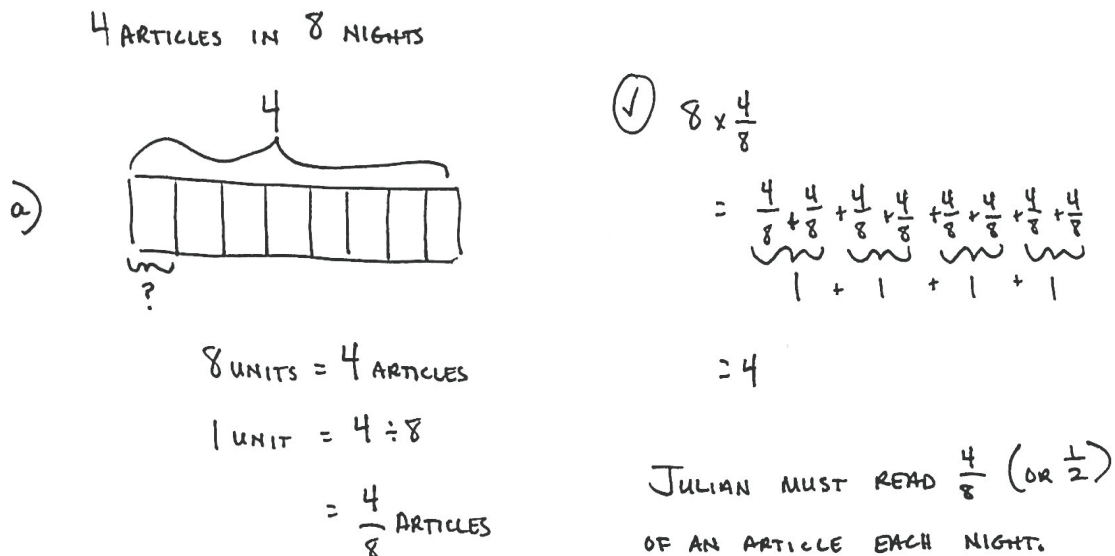 4 ARTICLES IN 8 NIGHTS
4
a)
?
8 UNITS = 4 ARTICLES
1 UNIT = 4 ÷ 8
= 4/8 ARTICLES
✓ 8 × 4/8
= 4/8 + 4/8 + 4/8 + 4/8 + 4/8 + 4/8 + 4/8 + 4/8
1 + 1 + 1 + 1
= 4
JULIAN MUST READ 4/8 (OR 1/2)
OF AN ARTICLE EACH NIGHT.